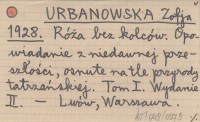 URBANOWSKA Zofja
1928. Róża bez kolców. Opo-
wiadanie z niedawnej prze-
szłości, osnute na tle przyrody
tatrzańskiej. Tom I. Wydanie
II. — Lwów, Warszawa.